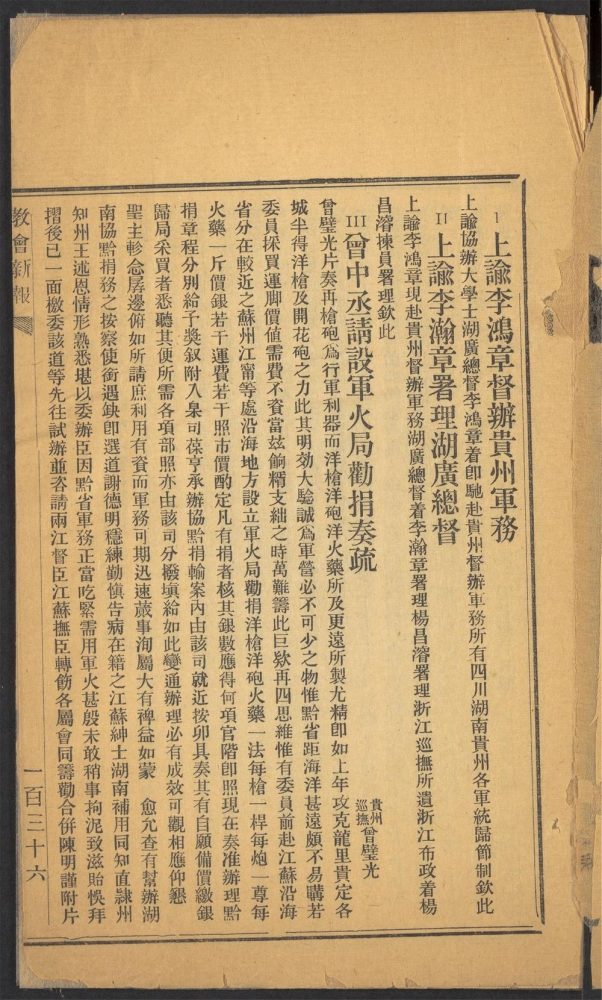 I 上諭李鴻章督辦貴州軍務
上諭協辦大學士湖廣總督李鴻章着卽馳赴貴州督辦軍務所有四川湖南貴州各軍統歸節制欽此
II 上諭李瀚章署理湖廣總督
上諭李鴻章現赴貴州督辦軍務湖廣總督着李瀚章署理楊昌濬署理浙江巡撫所遺浙江布政着楊
昌濬揀員署理欽此
III 曾中丞請設軍火局勸捐奏疏
貴州巡撫曾璧光
曾璧光片奏再槍砲爲行軍利器而洋槍洋砲洋火藥所及更遠所製尤精卽如上年攻克龍里貴定各
城半得洋槍及開花砲之力此其明効大驗誠爲軍營必不可少之物惟黔省距海洋甚遠頗不易購若
委員採買運脚價値需費不資當玆餉糈支絀之時萬難籌此巨欵再四思維惟有委員前赴江蘇沿海
省分在較近之蘇州江甯等處沿海地方設立軍火局勸捐洋槍洋砲火藥一法每槍一桿每炮一尊每
火藥一斤價銀若干運費若干照市價酌定凡有捐者核其銀數應得何項官階卽照現在奏准辦理黔
捐章程分別給予獎叙附入臬司葆亨承辦協黔捐輸案內由該司就近按卯具奏其有自願備價繳銀
歸局采買者悉聽其便所需各項部照亦由該司分撥塡給如此變通辦理必有成效可觀相應仰懇
聖主軫念孱邊俯如所請庶利用有資而軍務可期迅速蕆事洵屬大有裨益如蒙　愈允查有幫辦湖
南協黔捐務之按察使銜遇缺卽選道謝德明穩練勤愼告病在籍之江蘇紳士湖南補用同知直隷州
知州王述恩情形熟悉堪以委辦臣因黔省軍務正當吃緊需用軍火甚殷未敢稍事拘泥致滋貽悞拜
摺後已一面檄委該道等先往試辦並咨請兩江督臣江蘇撫臣轉飭各屬會同籌勸合併陳明謹附片
教會新報
一百三十六